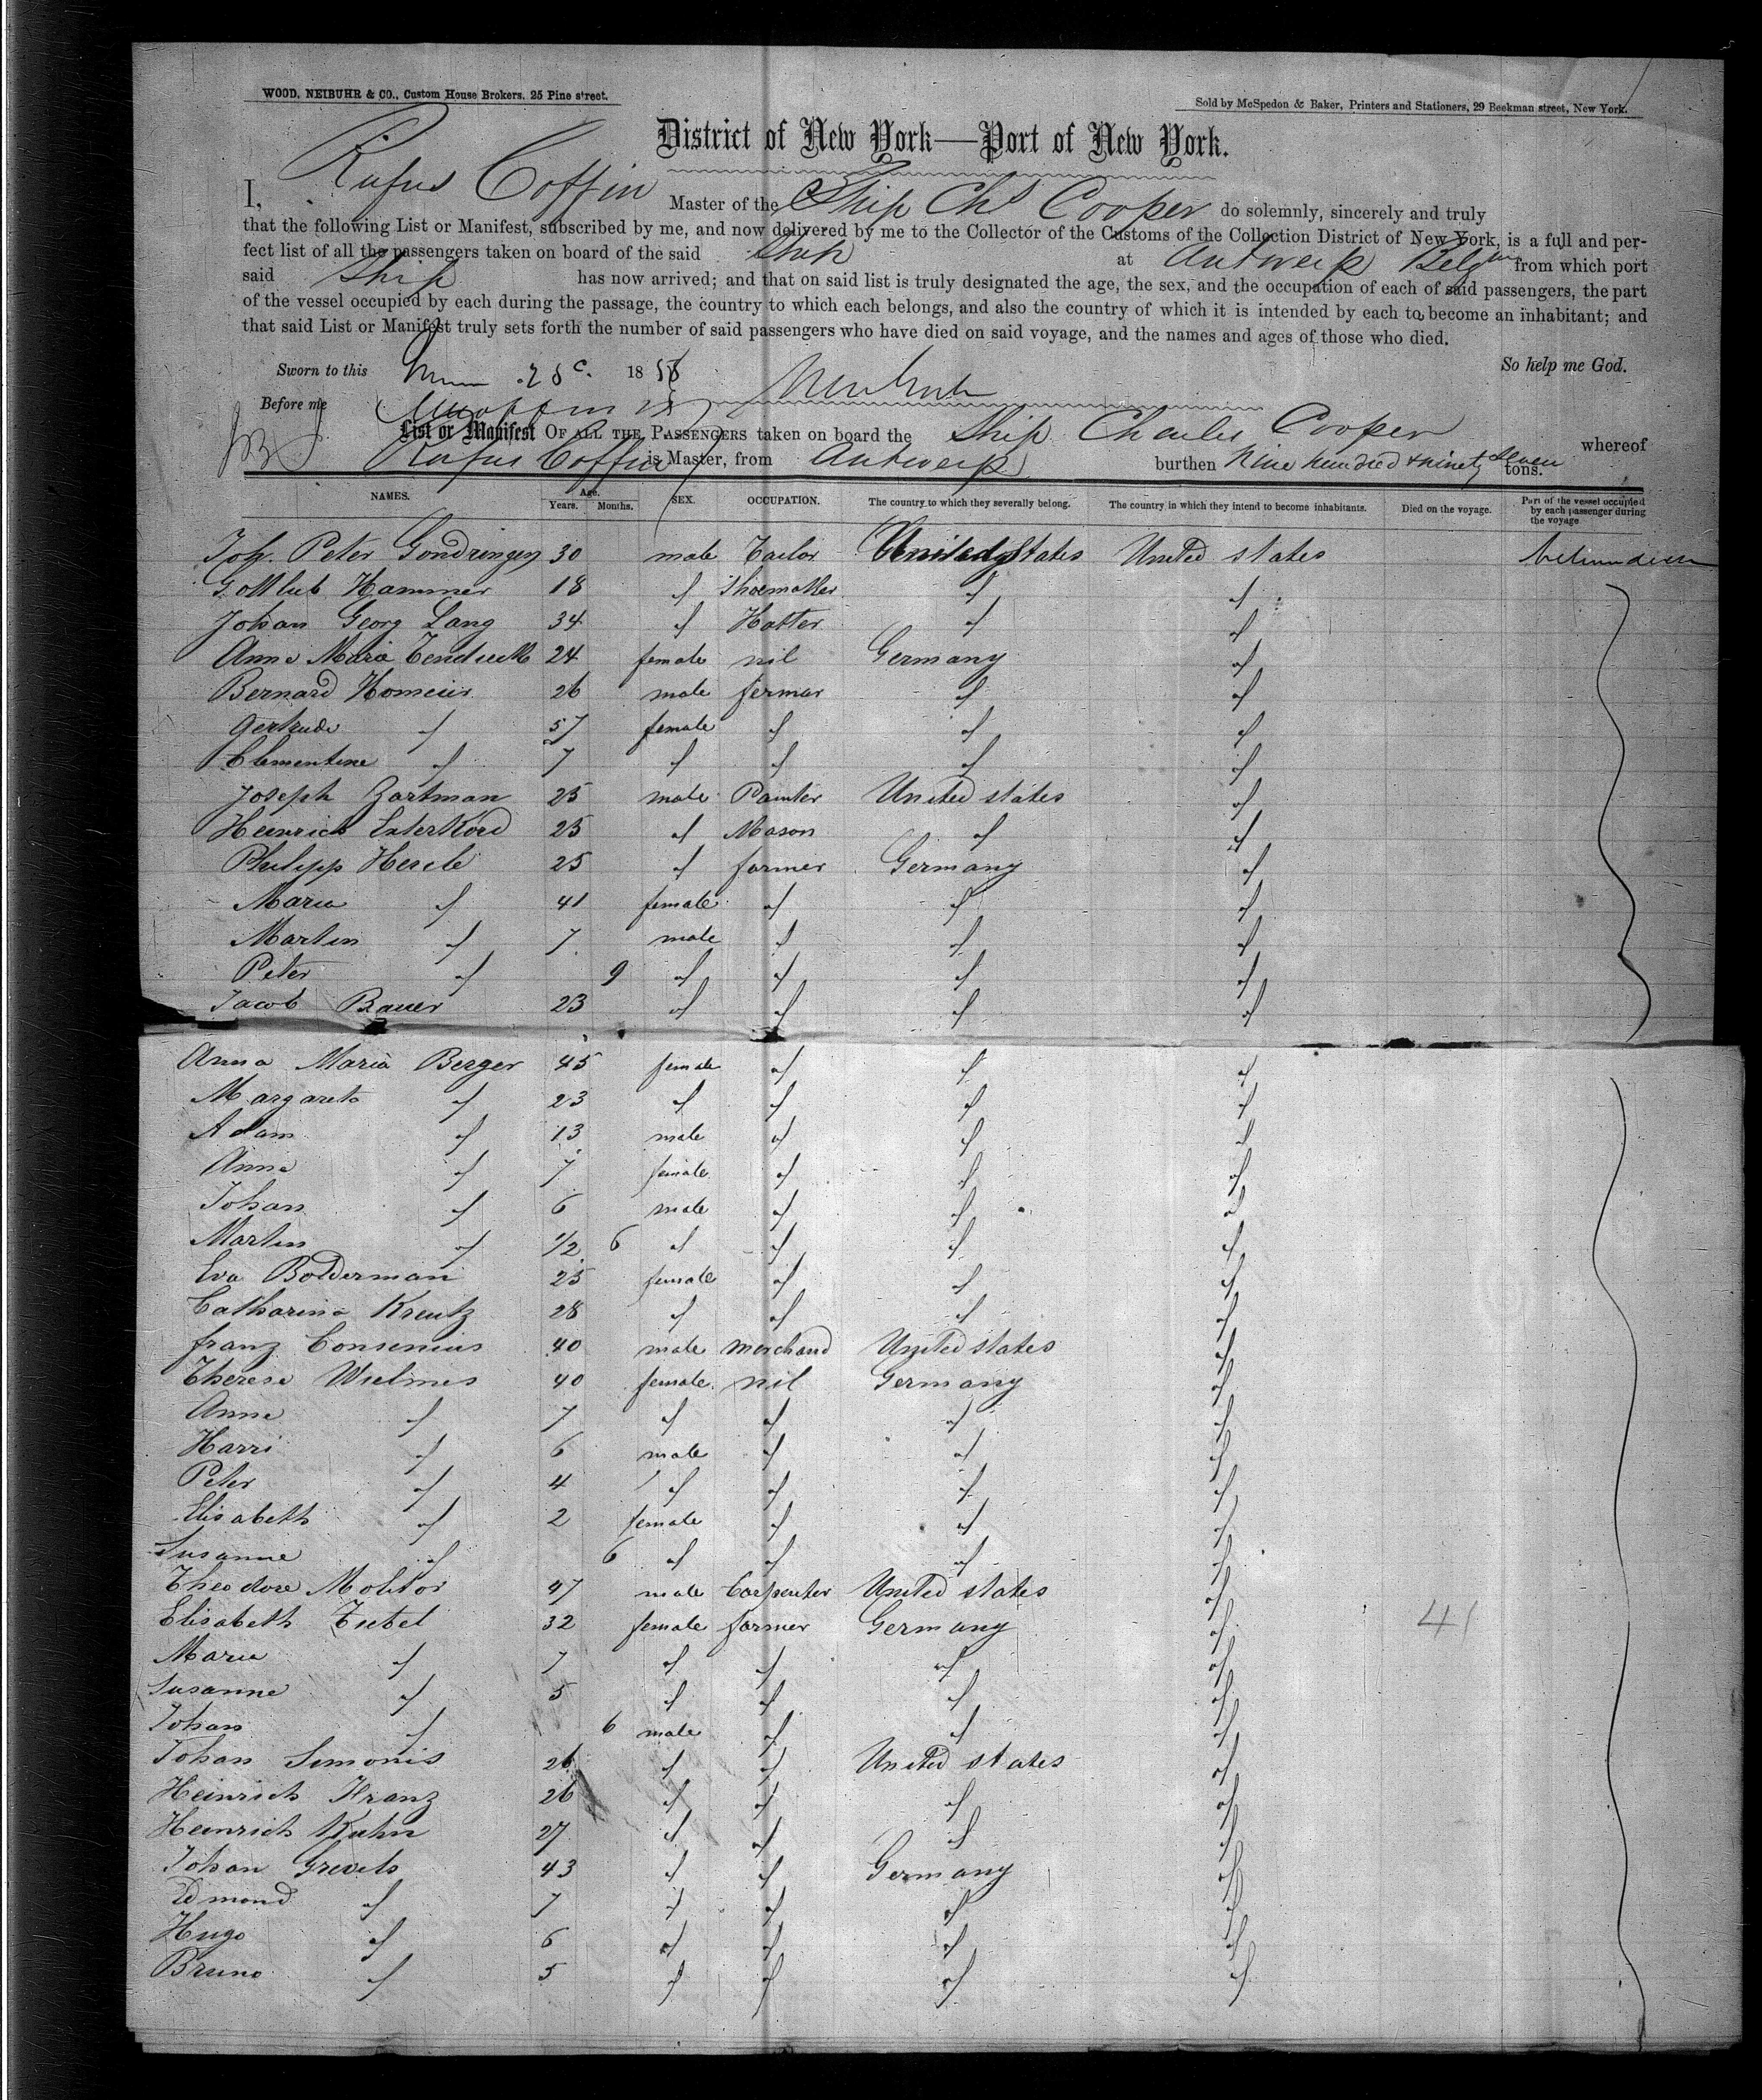 WOOD, NEIBUHR & CO., Custom House Brokers. 25 Pine street.
Sold by McSpedon & Baker, Printers and Stationers, 29 Beekman street, New York.
District of New York—Port of New York.
I, Rufus Coffin Master of the Ship Chs Cooper do solemnly, sincerely and truly
that the following List or Manifest, subscribed by me, and now delivered by me to the Collector of the Customs of the Collection District of New York, is a full and per-
fect list of all the passengers taken on board of the said Ship at Antwerp Belgm from which port
said Ship has now arrived; and that on said list is truly designated the age, the sex, and the occupation of each of said passengers, the part
of the vessel occupied by each during the passage, the country to which each belongs, and also the country of which it is intended by each to become an inhabitant; and
that said List or Manifest truly sets forth the number of said passengers who have died on said voyage, and the names and ages of those who died.
Sworn to this 1858 So help me God.
Before me
List or Manifest OF ALL THE PASSENGERS taken on board the Ship Charles Cooper whereof
Rufus Coffin is Master, from Antwerp burthen Nine hundred & ninety seven tons.
NAMES. Age. Years. Months. SEX. OCCUPATION. The country to which they severally belong. The country in which they intend to become inhabitants. Died on the voyage. Part of the vessel occupied by each passenger during the voyage
Joh. Peter Gondringen 30 male Tailor United States United states
Gottlieb Hammer 18 " Shoemaker " "
Johan Georg Lang 34 " Hatter " "
Anna Maria 24 female nil Germany "
Bernard Homeier 26 male fermar " "
Gertrude " 57 female " " "
Clementine " 7 " " " "
Joseph Zartman 25 male Painter United states "
Heinrich Exterkord 25 " Mason " "
Philipp Hercle 25 " farmer Germany "
Maria " 41 female " " "
Martin " 7 male " " "
Peter " 9 " " " "
Jacob Bauer 23 " " " "
Anna Maria Berger 45 female " " "
Margareta " 23 " " " "
Adam " 13 male " " "
Anna " 7 female " " "
Johan " 6 male " " "
Martin " 1/2 6 " " " "
Eva Bolderman 25 female " " "
Catharina Kreutz 28 " " " "
franz Consenius 40 male merchand United states "
Therese Wielmes 40 female nil Germany "
Anna " 7 " " " "
Harri " 6 male " " "
Peter " 4 " " " "
Elisabeth " 2 female " " "
Susanne " 6 " " " "
Theodore Molitor 47 male Carpenter United states "
Elisabeth Tietel 32 female farmer Germany " 41
Maria " 7 " " " "
Susanne " 5 " " " "
Johan " 6 male " " "
Johan Simonis 26 " " United states "
Heinrich Kranz 26 " " " "
Heinrich Kuhn 27 " " " "
Johan Grevels 43 " " Germany "
Edmond " 7 " " " "
Hugo " 6 " " " "
Bruno " 5 " " " "